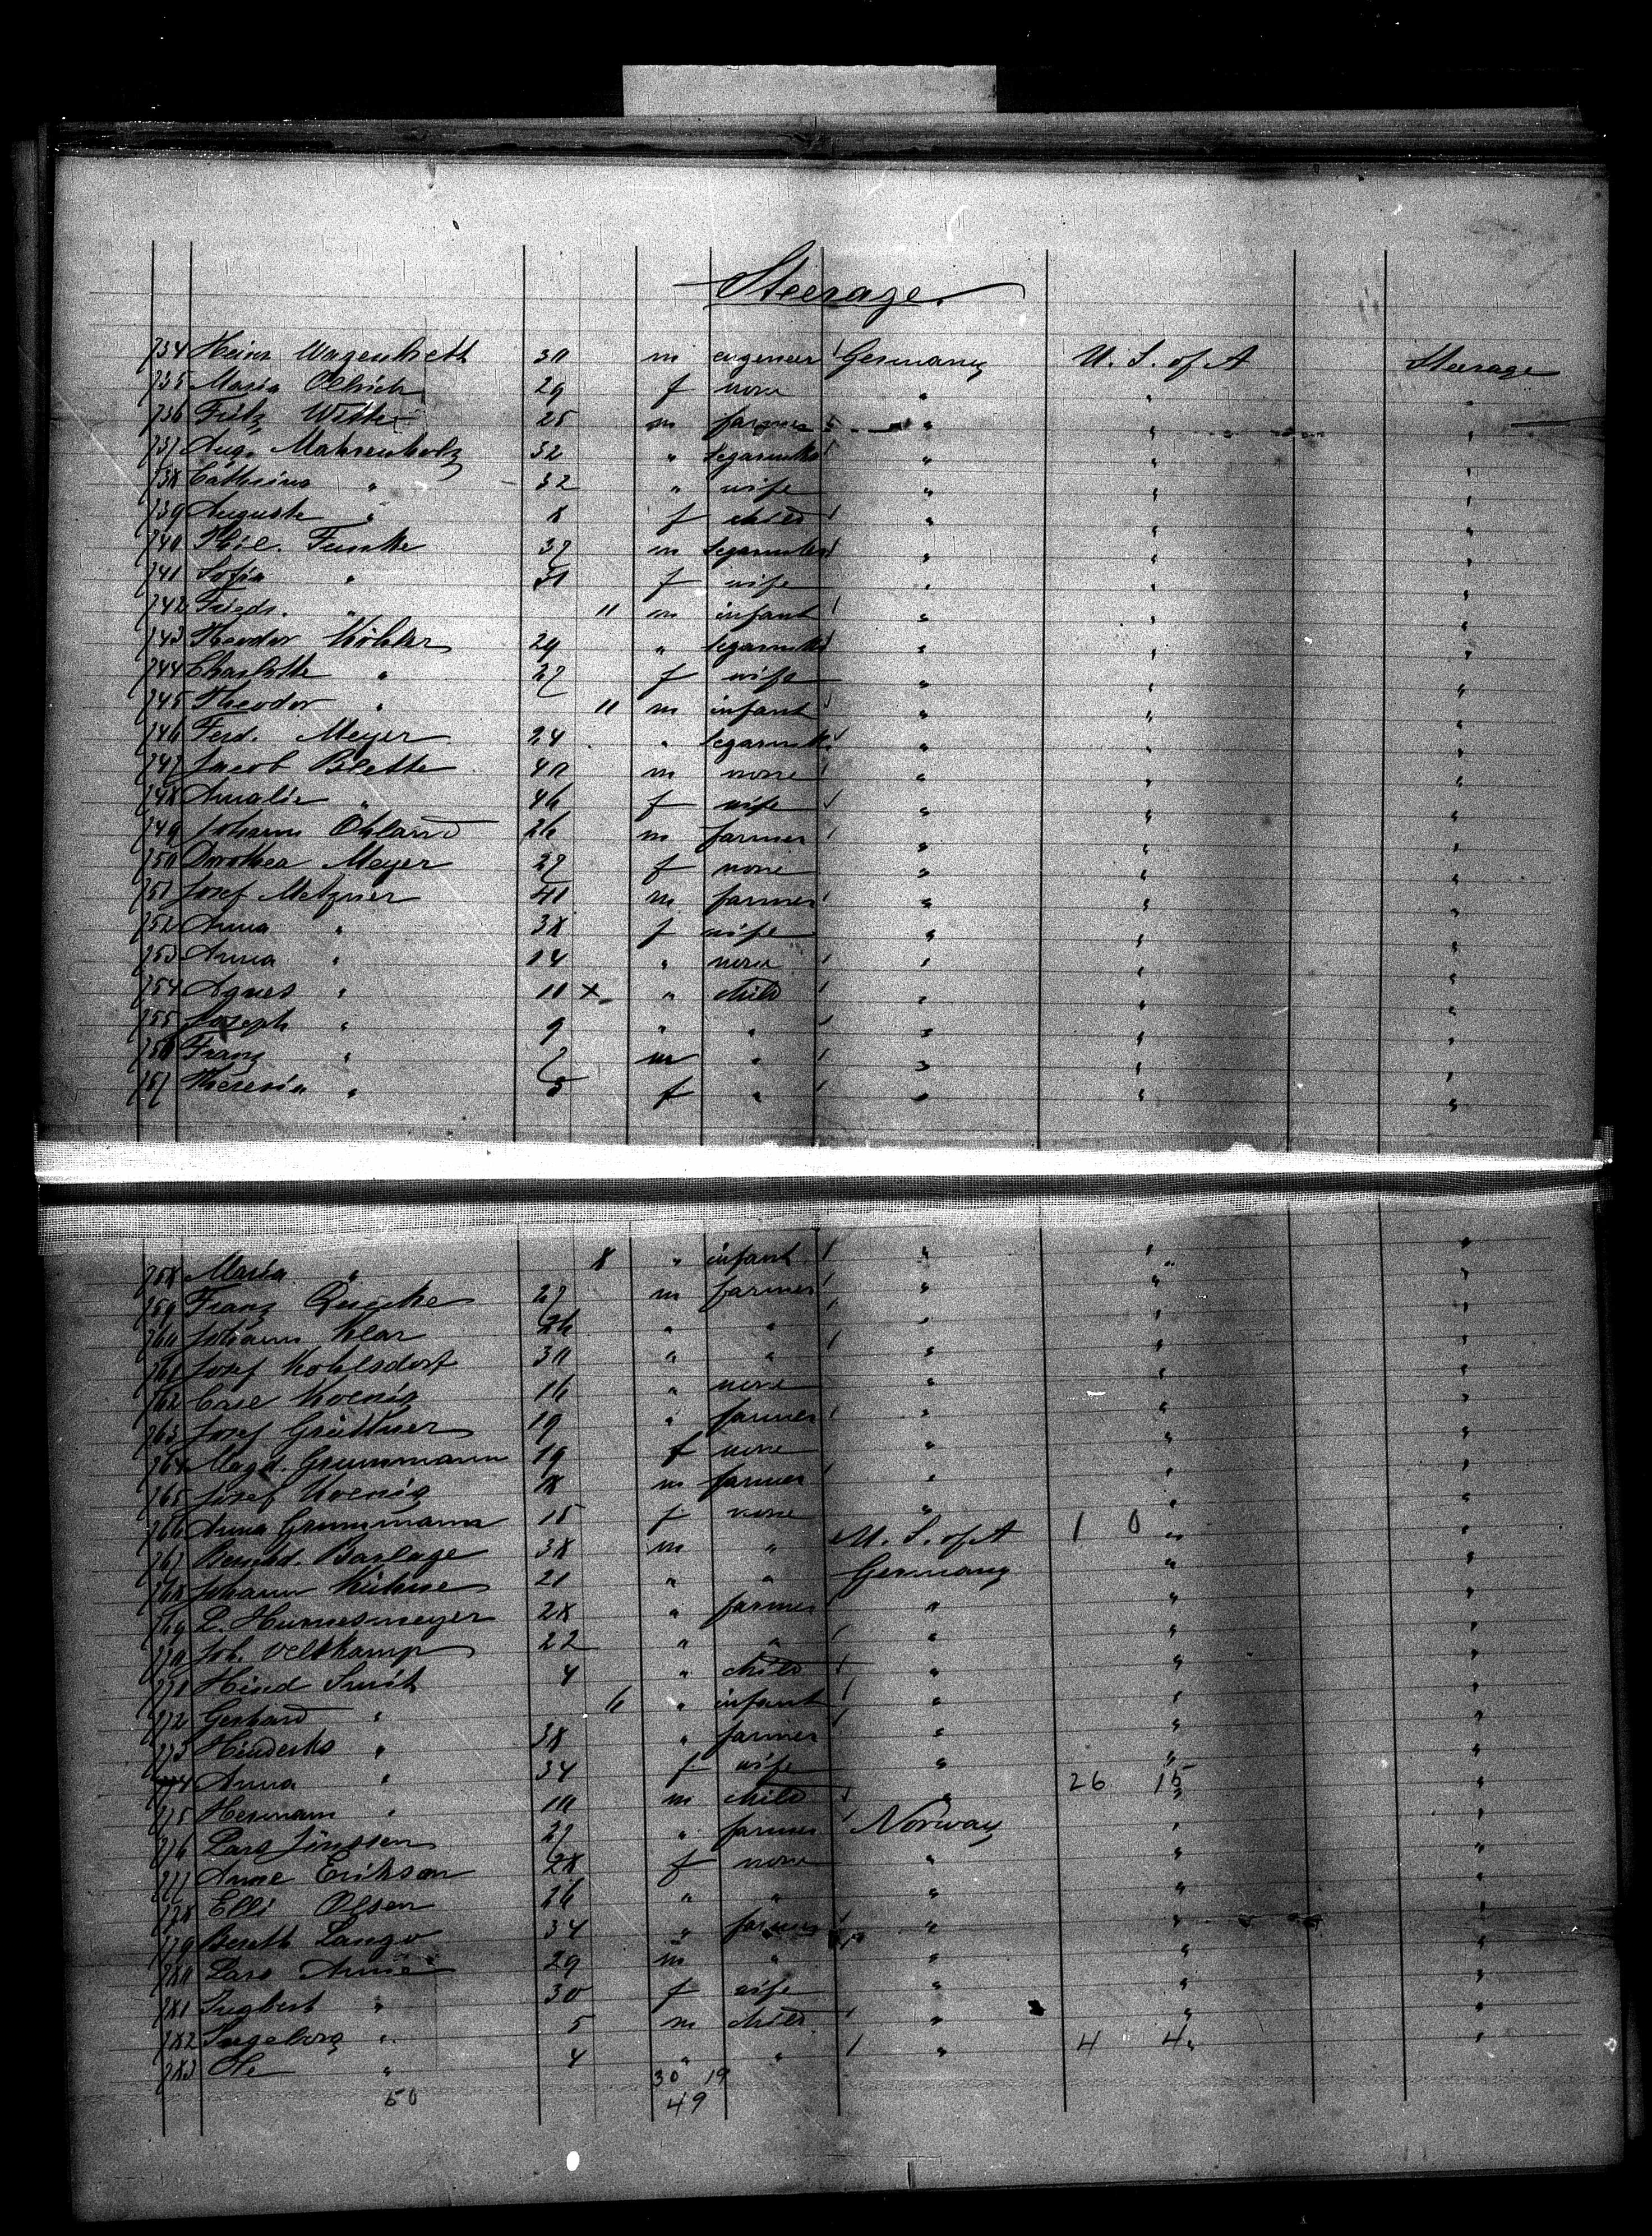 Steerage.
734 Heinr. Wagenbrett 30 m engeneer Germany U. S. of A Steerage
735 Maria Ollrich 29 f none " " "
736 Fritz Witte 25 m farmer " " "
737 Aug. Mahrenholz 32 " Segarmker " " "
738 Catherina " 32 " wife " " "
739 Auguste " 8 f child " " "
740 Phil. Funke 37 m Segarmker " " "
741 Sofia " 31 f wife " " "
742 Friedr. " 11 m infant " " "
743 Theodor Köhler 29 " Segarmkr " " "
744 Charlotte " 27 f wife " " "
745 Theodor " 11 m infant " " "
746 Ferd. Meyer 24 " Segarmk. " " "
747 Jacob Blette 40 m none " " "
748 Amalie " 46 f wife " " "
749 Johann Ohland 26 m farmer " " "
750 Dorothea Meyer 27 f none " " "
751 Josef Metzner 41 m farmer " " "
752 Anna " 38 f wife " " "
753 Anna " 14 " none " " "
754 Agnes " 11 x " child " " "
755 Joseph " 9 " " " " "
756 Franz " 7 m " " " "
757 Theresia " 5 f " " " "
758 Maria " 8 " infant " " "
759 Franz Quicke 27 m farmer " " "
760 Johann Klar 26 " " " " "
761 Josef Kohlsdorf 30 " " " " "
762 Carl Koenig 16 " none " " "
763 Josef Grüttner 19 " farmer " " "
764 Magd. Grummann 19 f none " " "
765 Josef Koenig 18 m farmer " " "
766 Anna Grummann 15 f none " " "
767 Bernhd. Barlage 38 m " U. S. of A 1 0 " "
768 Johann Kühne 21 " " Germany " "
769 L. Hunnesmeyer 28 " farmer " " "
770 Joh. Veltkamp 22 " " " " "
771 Hind Smit 4 " child " " "
772 Gerhard " 6 " infant " " "
773 Hinderks " 38 " farmer " " "
774 Anna " 34 f wife " " "
775 Hermann " 10 m child " 26 15 " "
776 Lars Jönssen 27 " farmer Norway " "
777 Anne Erikson 28 f none " " "
778 Elli Olsen 26 " " " " "
779 Bereth Lango 34 " farmer " " "
780 Lars Arnie 29 m " " " "
781 Ingbert " 30 f wife " " "
782 Ingeborg " 5 m child " " "
783 Ole " 4 " " " 4 4 " "
50 30 19
49